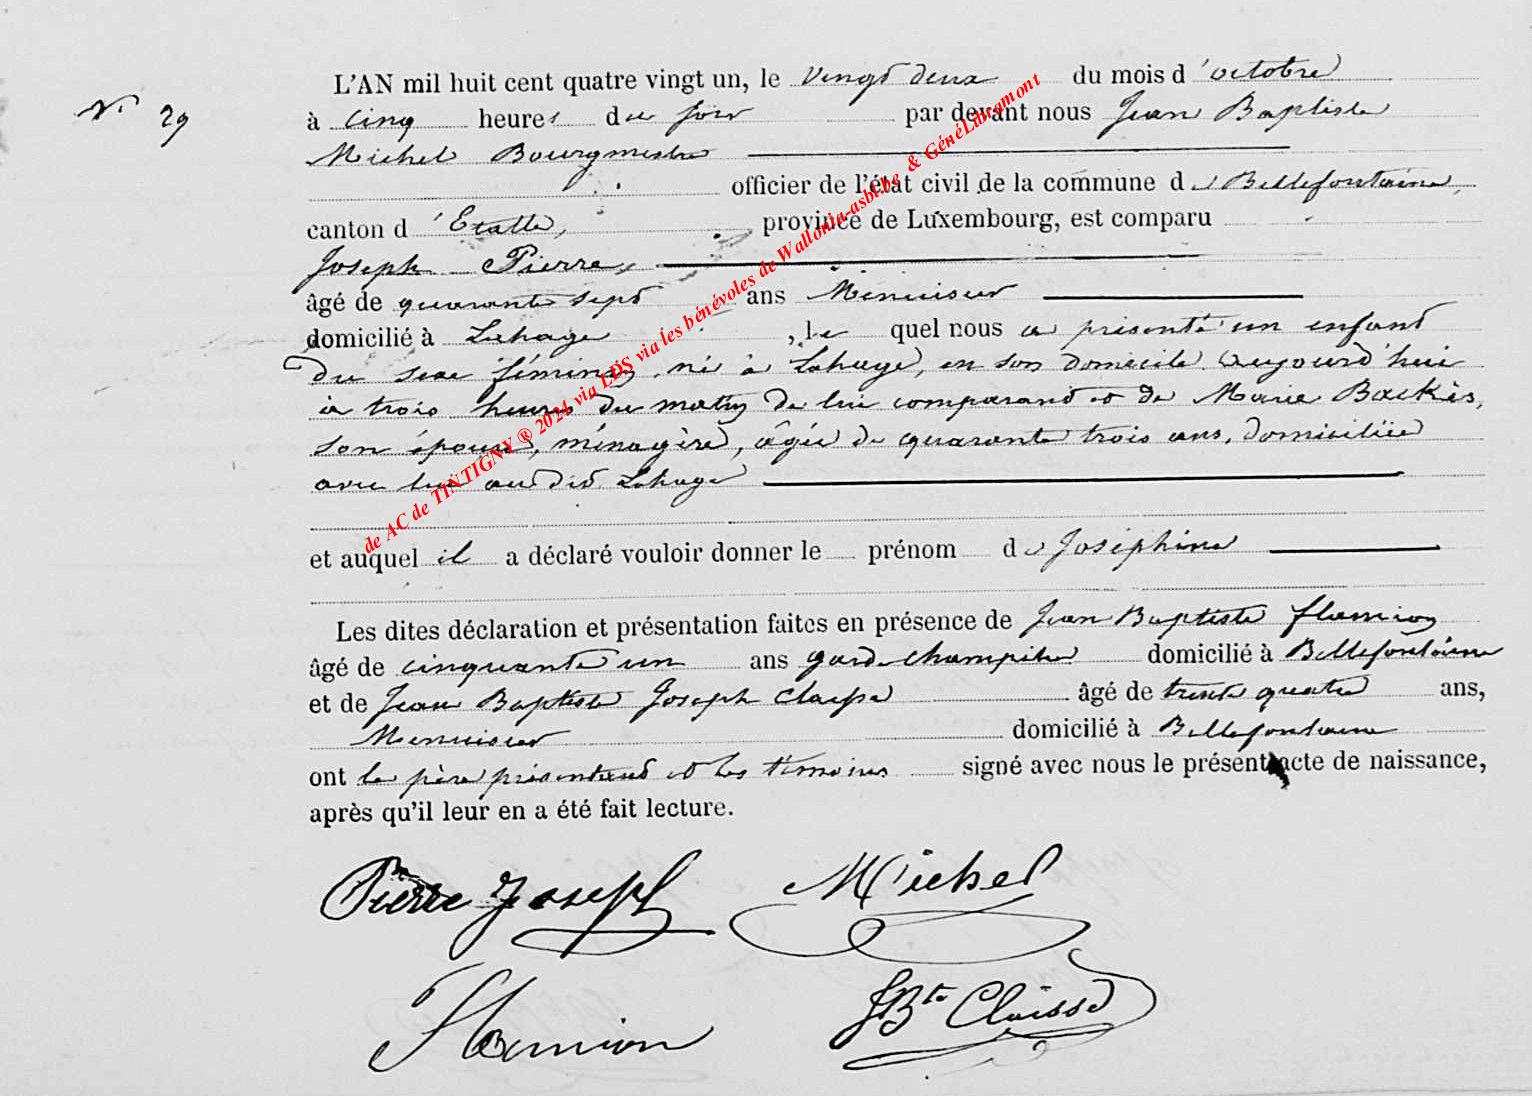 N° 29
L'AN mil huit cent quatre vingt un, le vingt deux du mois d'octobre
à cinq heures du soir par devant nous Jean Baptiste
Michel Bourgmestre
officier de l'état civil de la commune de Bellefontaine,
canton d'Etalle, province de Luxembourg, est comparu
Joseph Pierre,
âgé de quarante sept ans Menuisier
domicilié à Lahage, le quel nous a présenté un enfant
du sexe féminin, né à Lahage, en son domicile aujourd'hui
à trois heures du matin de lui comparant et de Marie Backès,
son épouse, ménagère, âgée de quarante trois ans, domiciliée
avec lui au dit Lahage
et auquel il a déclaré vouloir donner le prénom de Joséphine
Les dites déclaration et présentation faites en présence de Jean Baptiste flamion
âgé de cinquante un ans garde champêtre domicilié à Bellefontaine
et de Jean Baptiste Joseph Claisse âgé de trente quatre ans,
Menuisier domicilié à Bellefontaine
ont le père présentant et les témoins signé avec nous le présent acte de naissance,
après qu'il leur en a été fait lecture.
Pierre Joseph Michel
Flamion JBte Claisse
de AC de TINTIGNY ® 2024 via LDS via les bénévoles de Wallonia-asbl.be & GénéLibramont